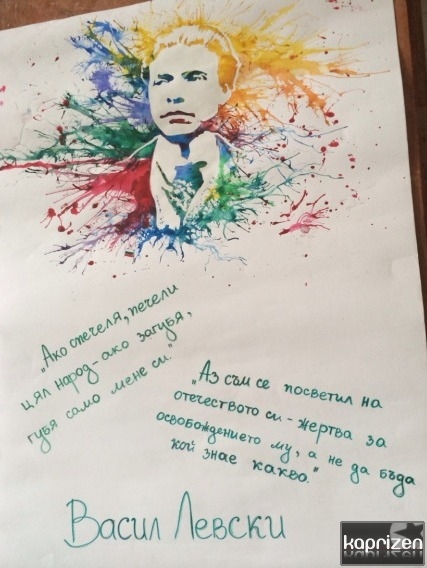 „Ако спечеля, печели
цял народ - ако загубя,
губя само мене си."
„Аз съм се посветил на
отечеството си - жертва за
освобождението му, а не да бъда
кой знае какво."
Васил Левски
kaprizen